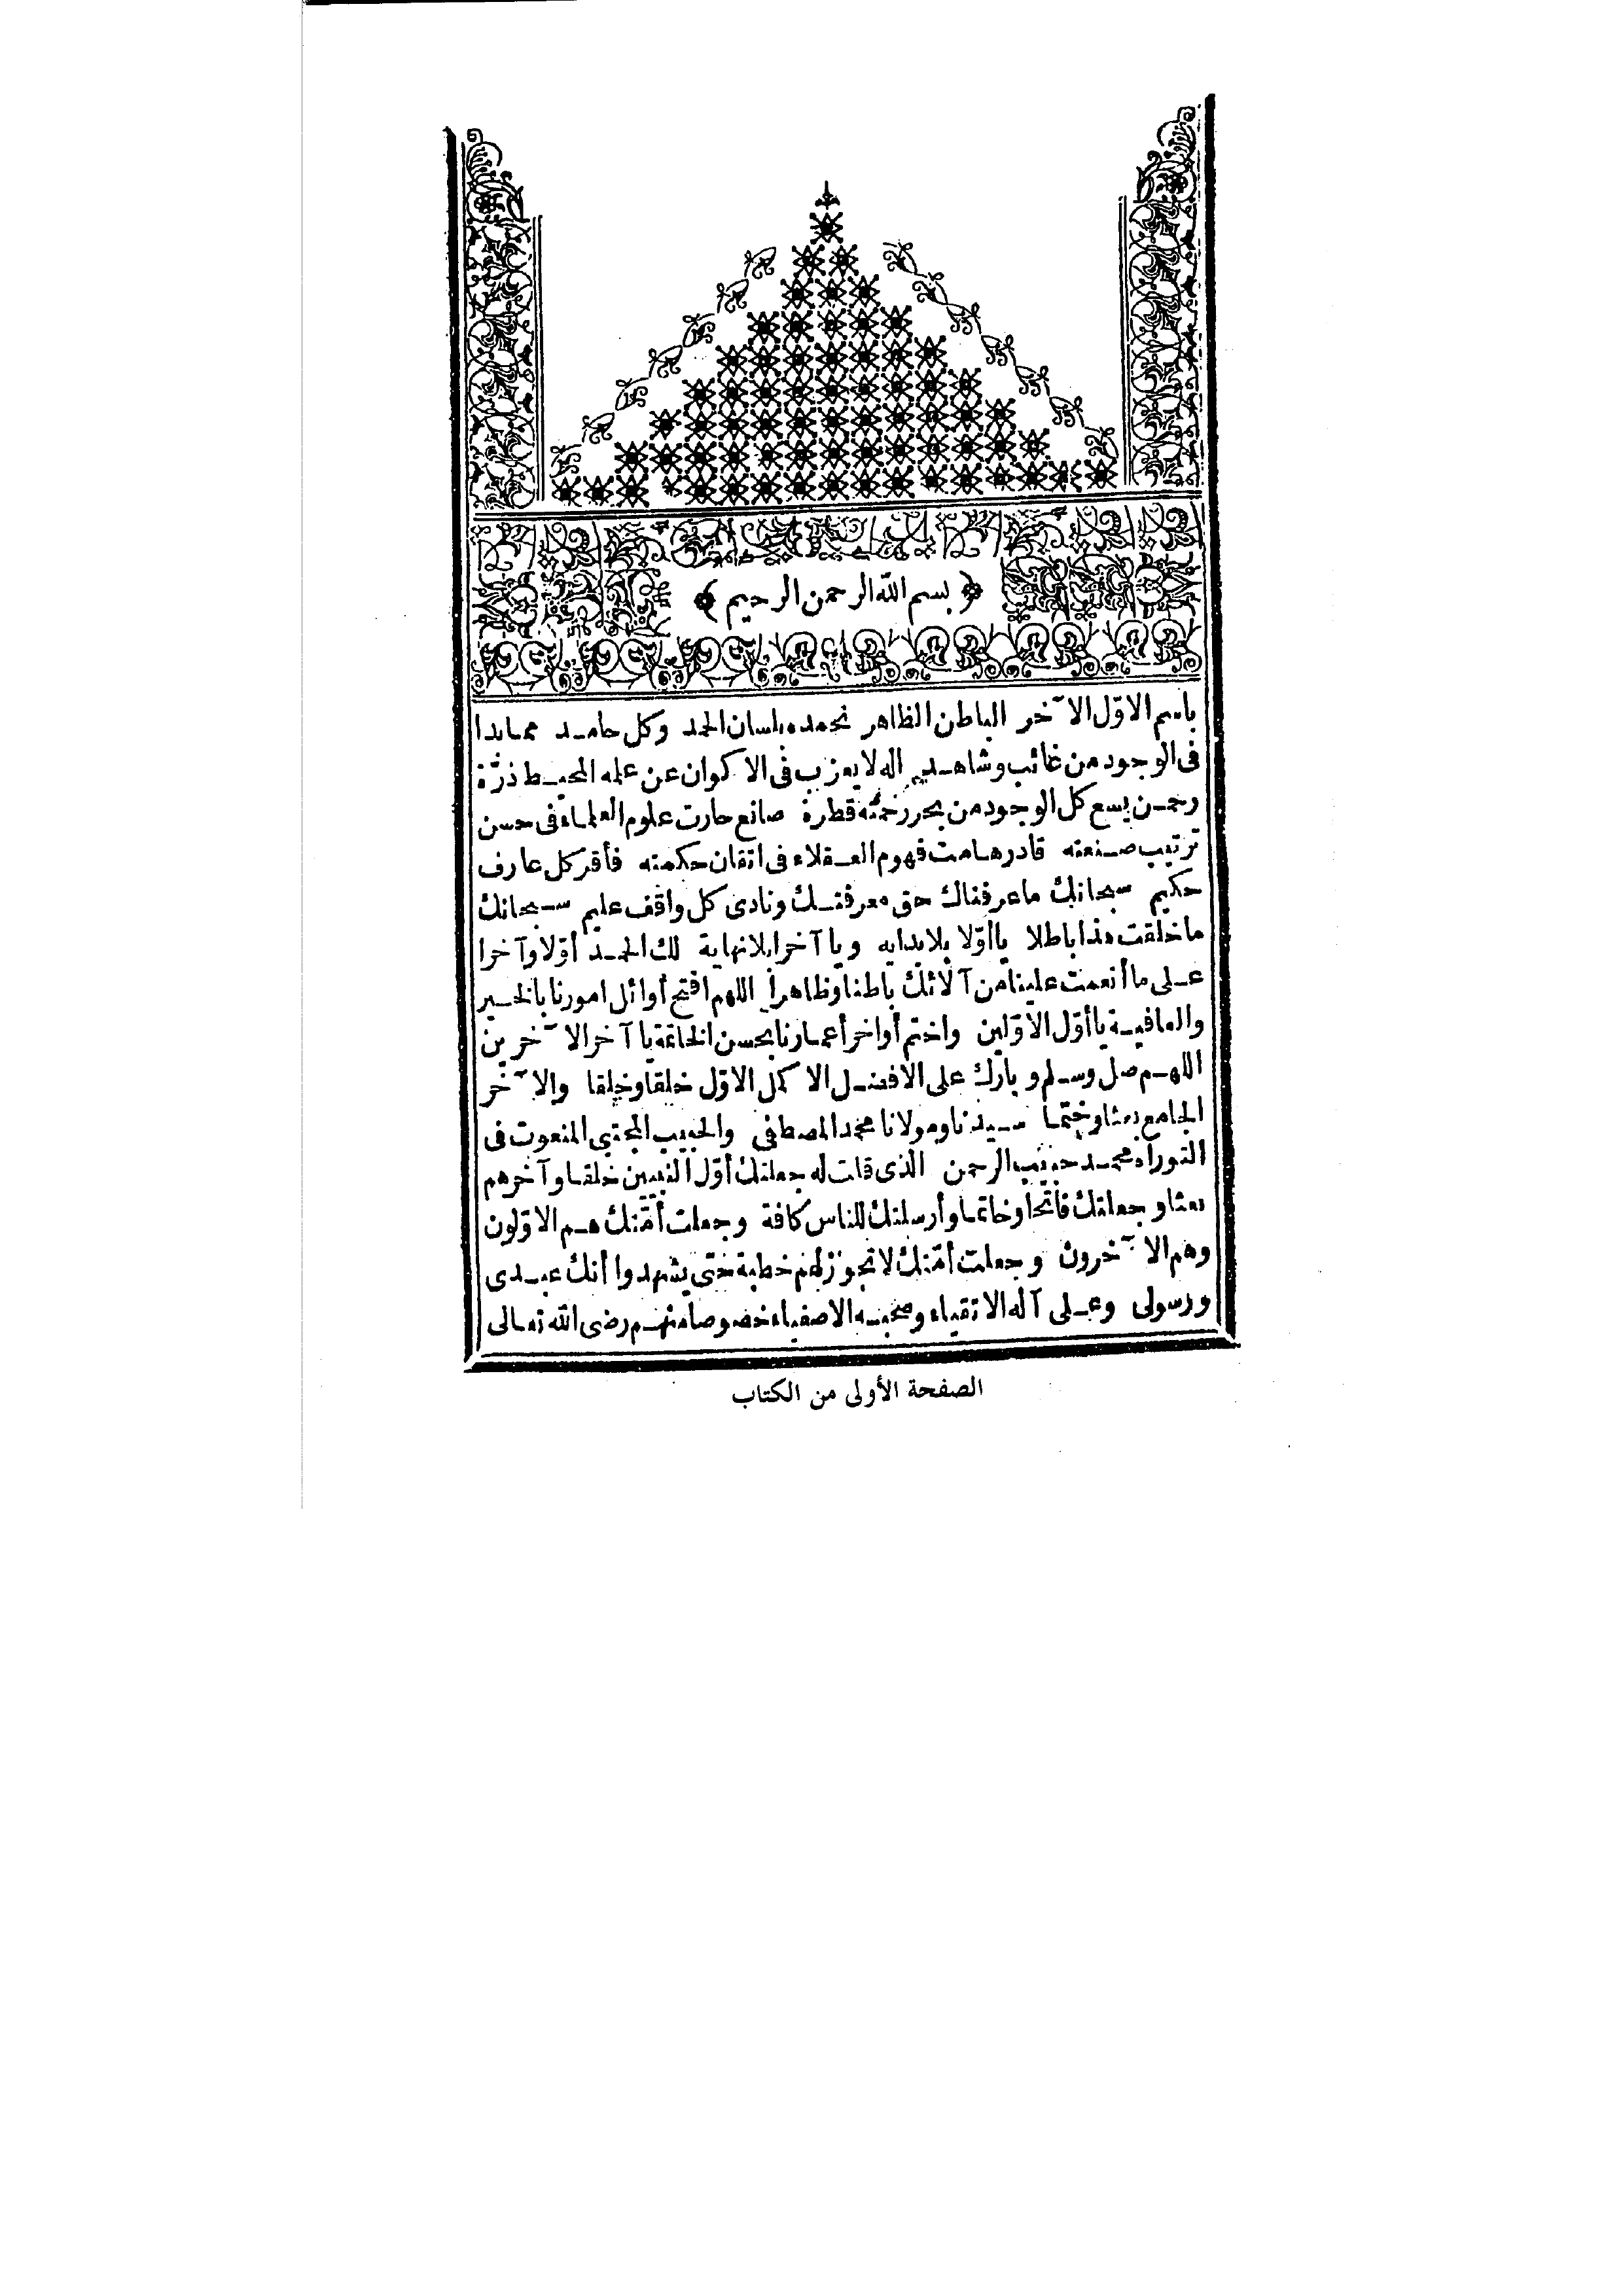 ﴿ بسم الله الرحمن الرحيم ﴾
باسم الاوّل الآخر الباطن الظاهر نحمده بلسان الحمد وكل حامد مما بدا
فى الوجود من غائب وشاهد اله لا يعزب فى الاكوان عن علمه المحيط ذرّة
رحمن يسع كل الوجود من بحر رحمته قطرة صانع حارت علوم العلماء فى حسن
ترتيب صنعته قادر هامت فهوم العقلاء فى اتقان حكمته فأقر كل عارف
حكيم سبحانك ما عرفناك حق معرفتك ونادى كل واقف عليم سبحانك
ما خلقت هذا باطلا يا أوّلا بلا بدايه ويا آخرا بلا نهاية لك الحمد أوّلا وآخرا
على ما أنعمت علينا من آلائك باطنا وظاهرا اللهم افتح أوائل امورنا بالخير
والعافية يا أوّل الاوّلين واختم أواخر أعمارنا بحسن الخاتمة يا آخر الآخرين
اللهم صل وسلم وبارك على الافضل الاكمل الاوّل خلقا وخلقا والآخر
الجامع بعثا وختما سيدنا ومولانا محمد المصطفى والحبيب المجتبى المنعوت فى
التوراة محمد حبيب الرحمن الذى قلت له جعلتك أوّل النبيين خلقا وآخرهم
بعثا وجعلتك فاتحا وخاتما وأرسلتك للناس كافة وجعلت أمّتك هم الاوّلون
وهم الآخرون وجعلت أمّتك لا تجوز لهم خطبة حتى يشهدوا أنك عبدى
ورسولى وعلى آله الاتقياء وصحبه الاصفياء خصوصا منهم رضى الله تعالى
الصفحة الأولى من الكتاب